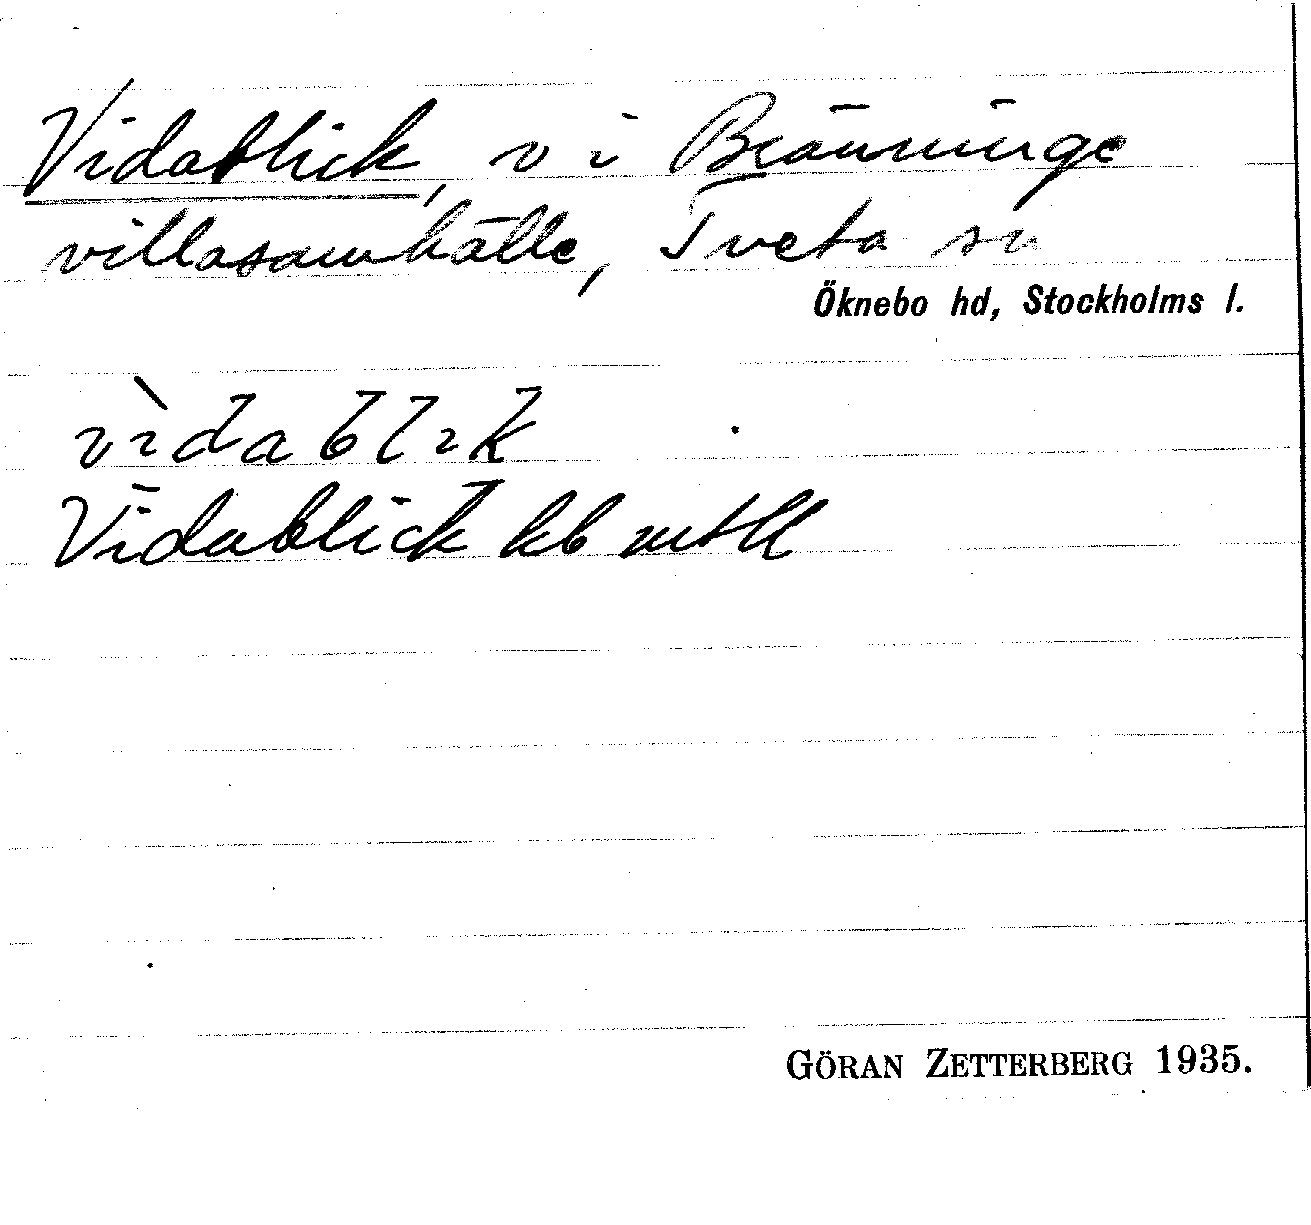 Vidablick, v i Bränninge
villasamhälle, Tveta sn
Öknebo hd, Stockholms l.
vìdablik
Vidablick kb mtll
GÖRAN ZETTERBERG 1935.